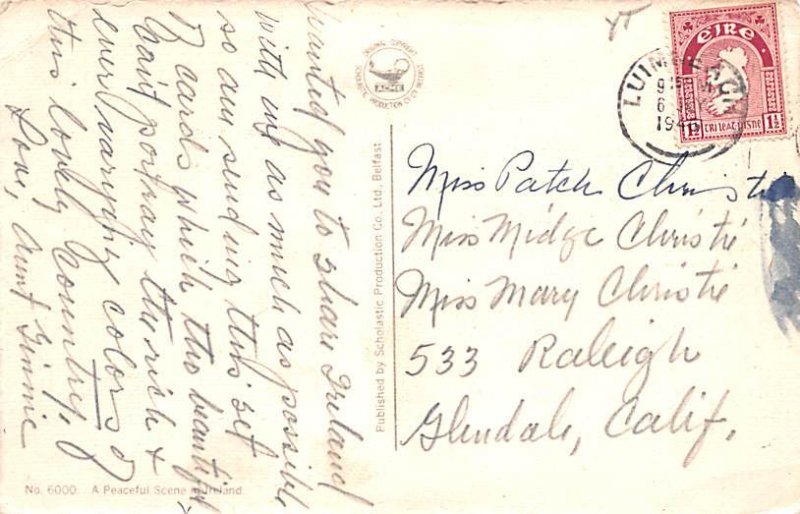 Wanted you to share Ireland
with me as much as possible
so am sending this set
of cards which tho beautiful
can't portray the rich &
ever varying colors of
this lovely country.
Love, Aunt Ginnie
No. 6000. A Peaceful Scene Ireland
ACME
Published by Scholastic Production Co., Ltd., Belfast
EIRE
1½ 1½
LUIMNEACH
1946
Miss Patch Christie
Miss Midge Christie
Miss Mary Christie
533 Raleigh
Glendale, Calif.